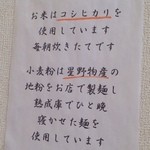 お米はコシヒカリを
使用しています
毎朝炊きたてです
小麦粉は星野物産の
地粉をお店で製麺し
熟成庫でひと晩
寝かせた麺を
使用しています